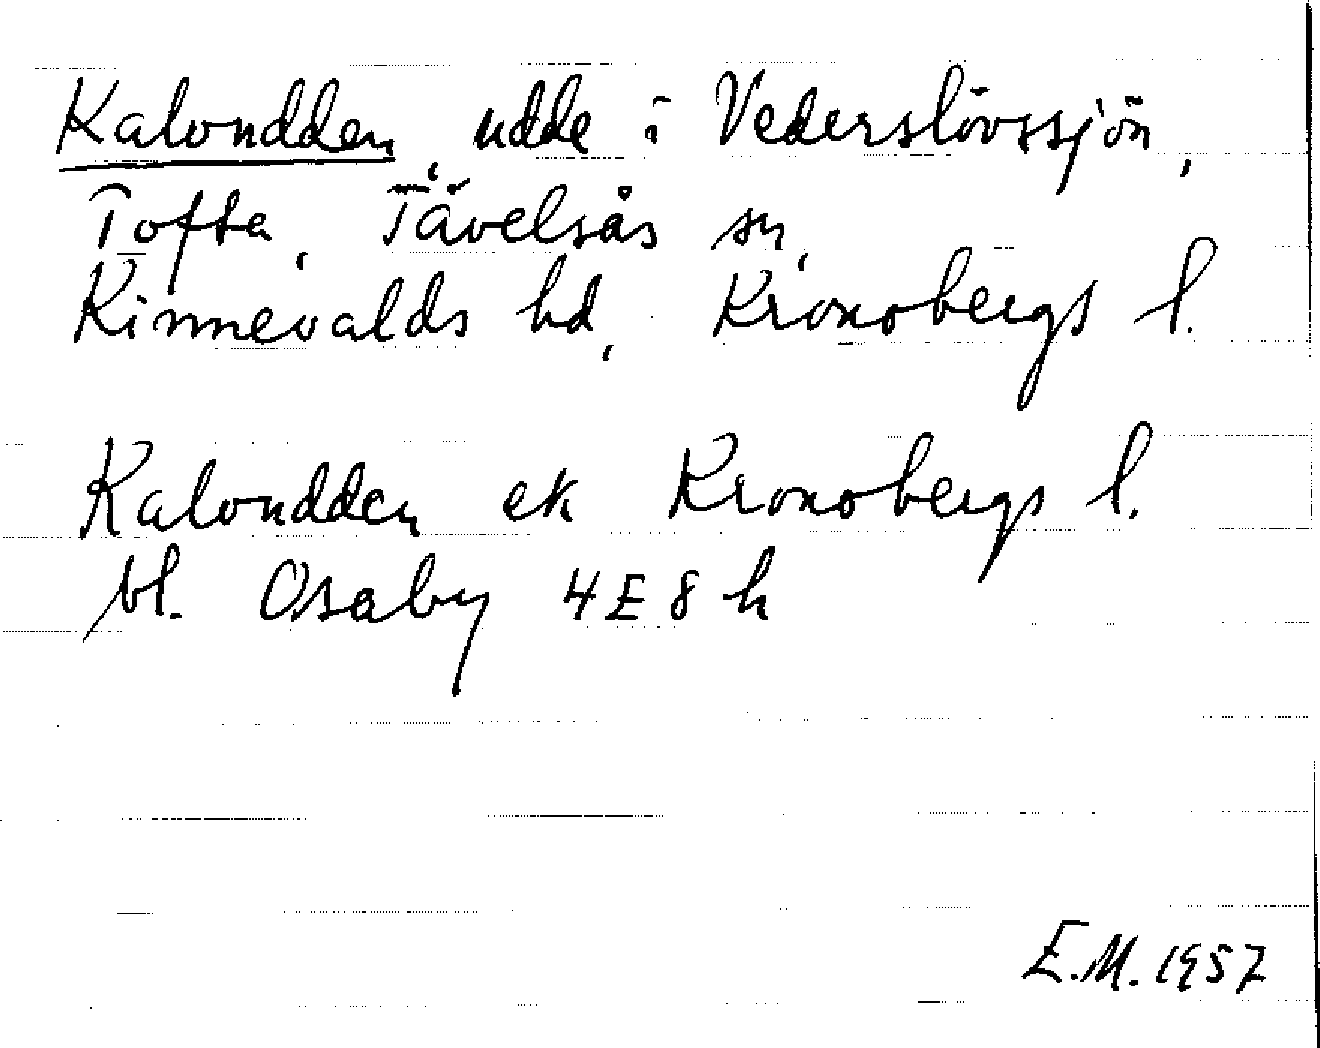 Kalvudden, udde i Vederslövssjön,
Tofta, Tävelsås sn,
Kinnevalds hd, Kronobergs l.
Kalvudden ek Kronobergs l.
bl. Osaby 4E8h
E.M. 1957